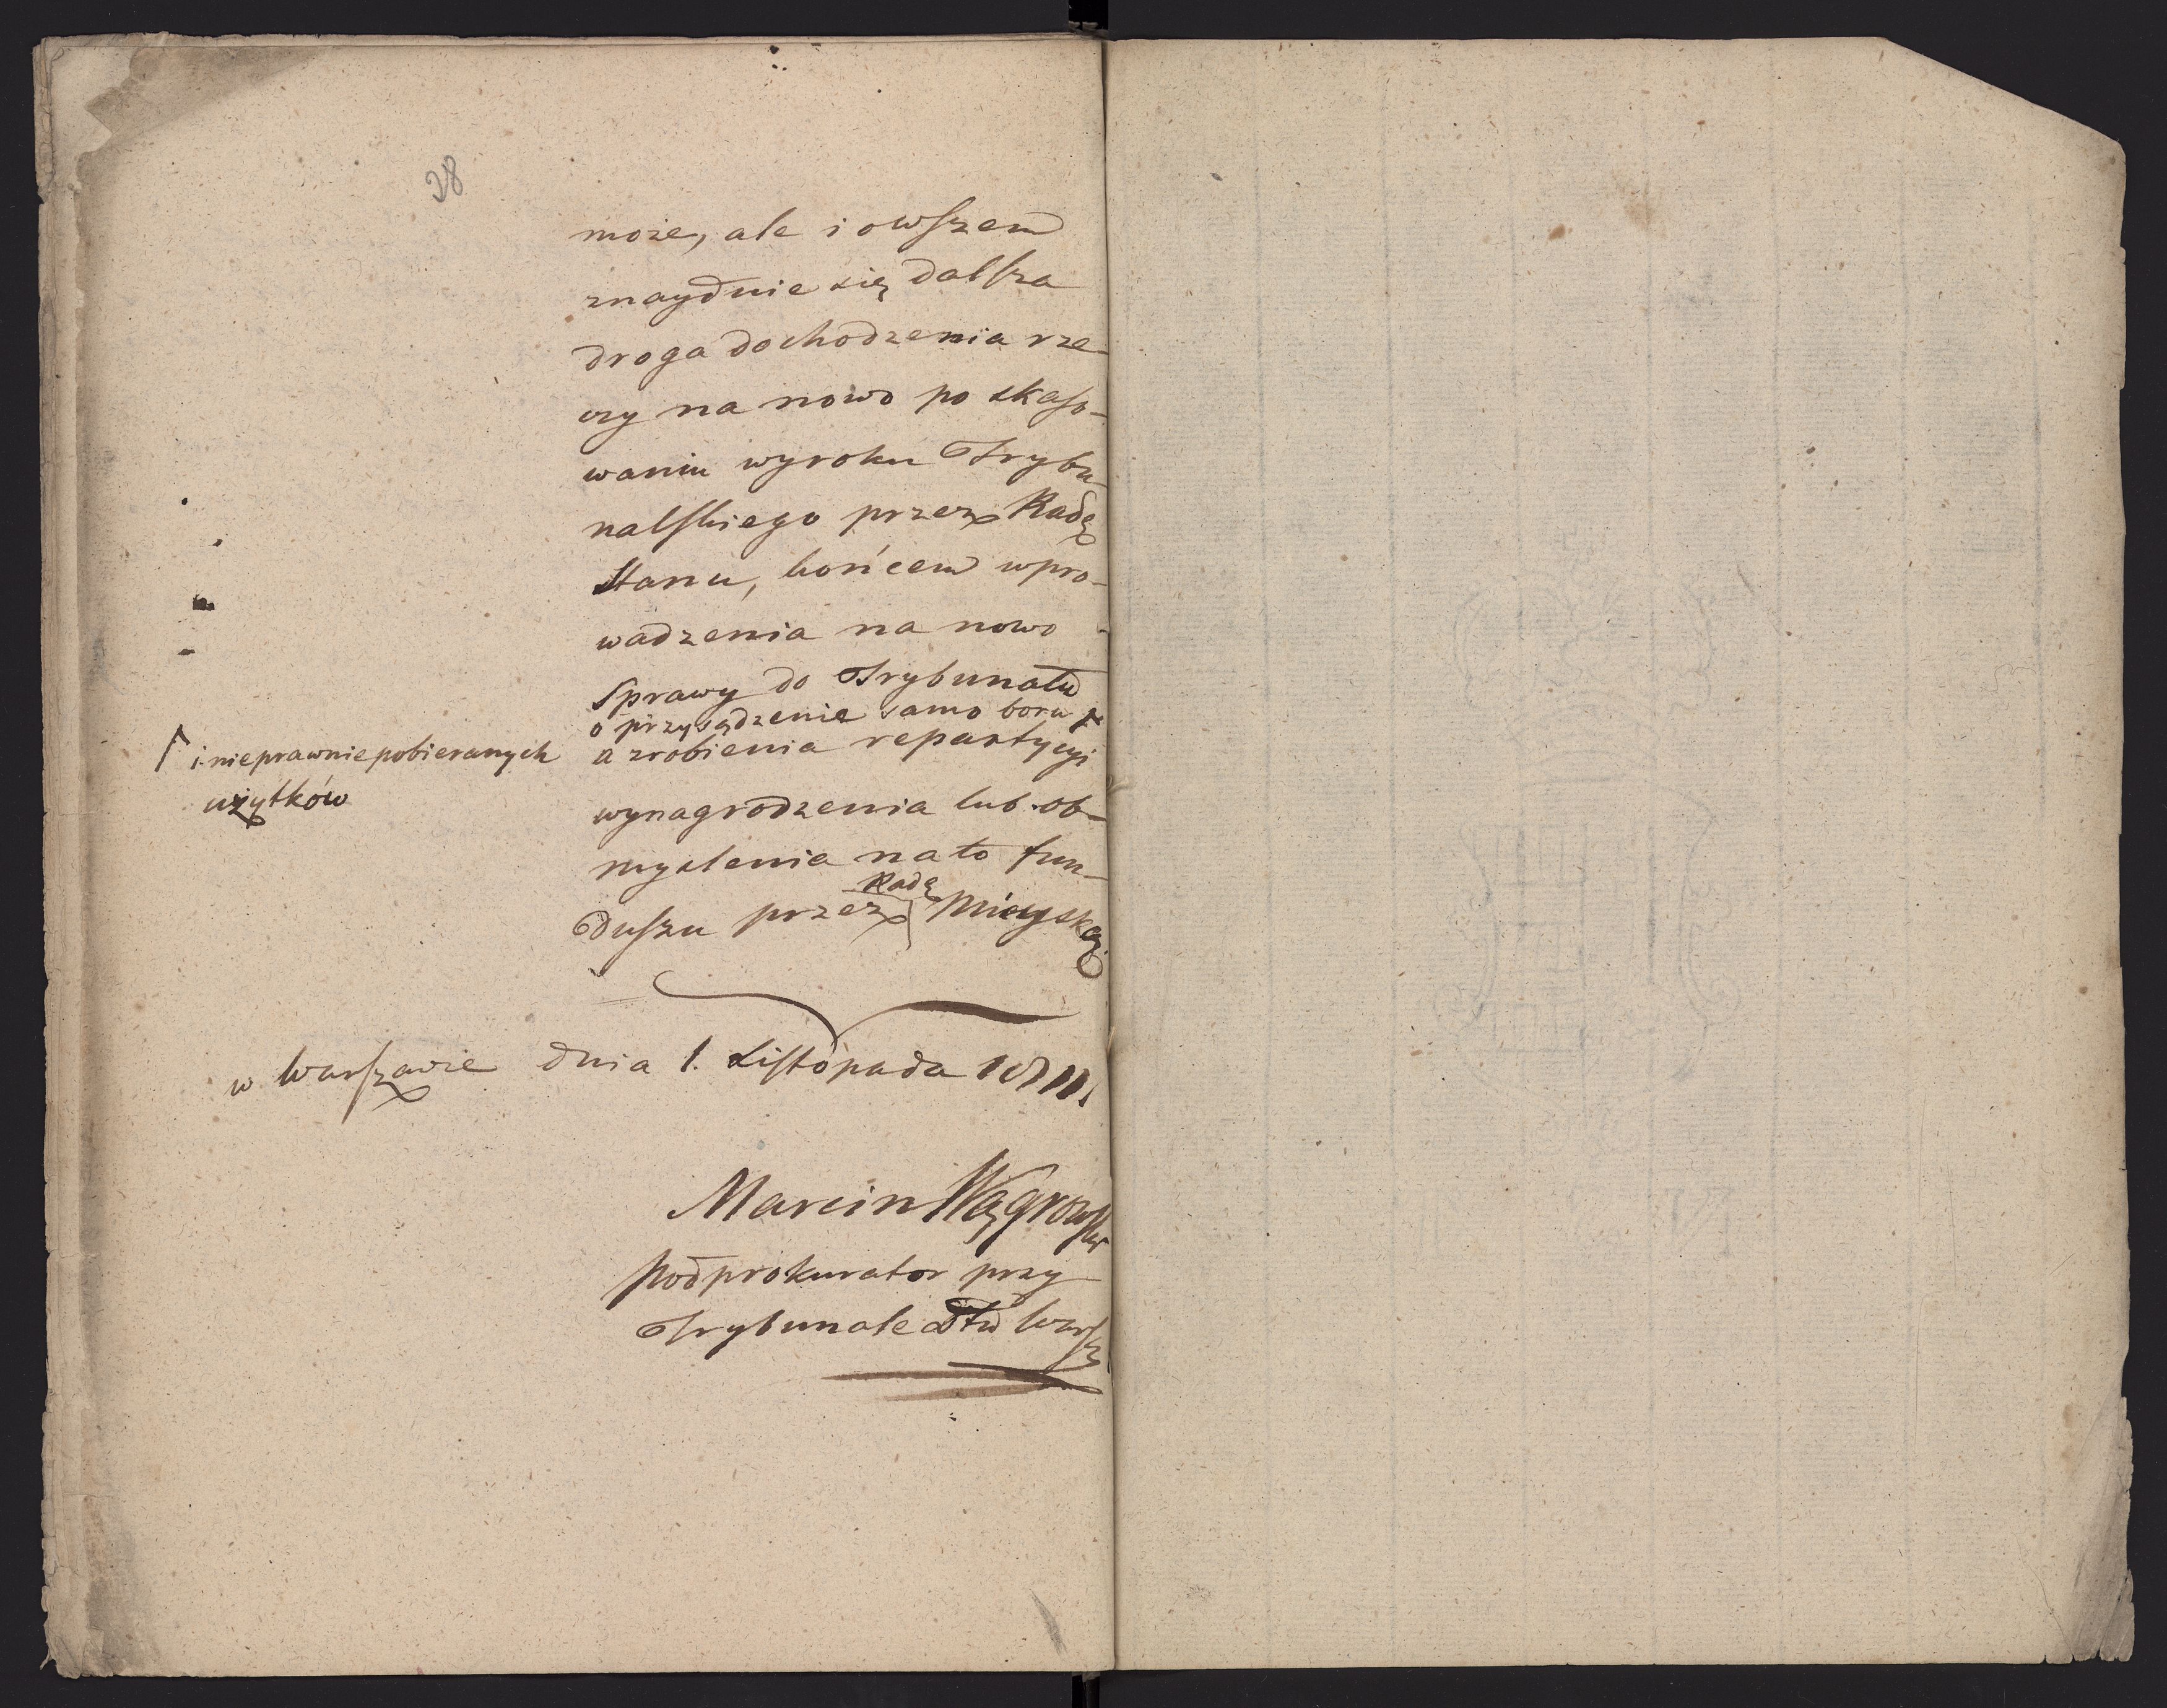 28
może, ale i owszem
znayduie się dalsza
droga dochodzenia rze-
czy na nowo po skaso-
waniu wyroku Trybu-
nalskiego przez Radę
Stanu, końcem wpro-
wadzenia na nowo -
Sprawy do Trybunału
o przysądzenie samo boru Γ
Γ i nieprawnie pobieranych
użytków
a zrobienia repartycyi
wynagrodzenia lub ob-
myslenia na to fun-
duszu przez Radę Mieyską
w Warszawie dnia 1. Listopada 1811.
Marcin Wągrowski
podprokurator przy
Trybunale Warsz